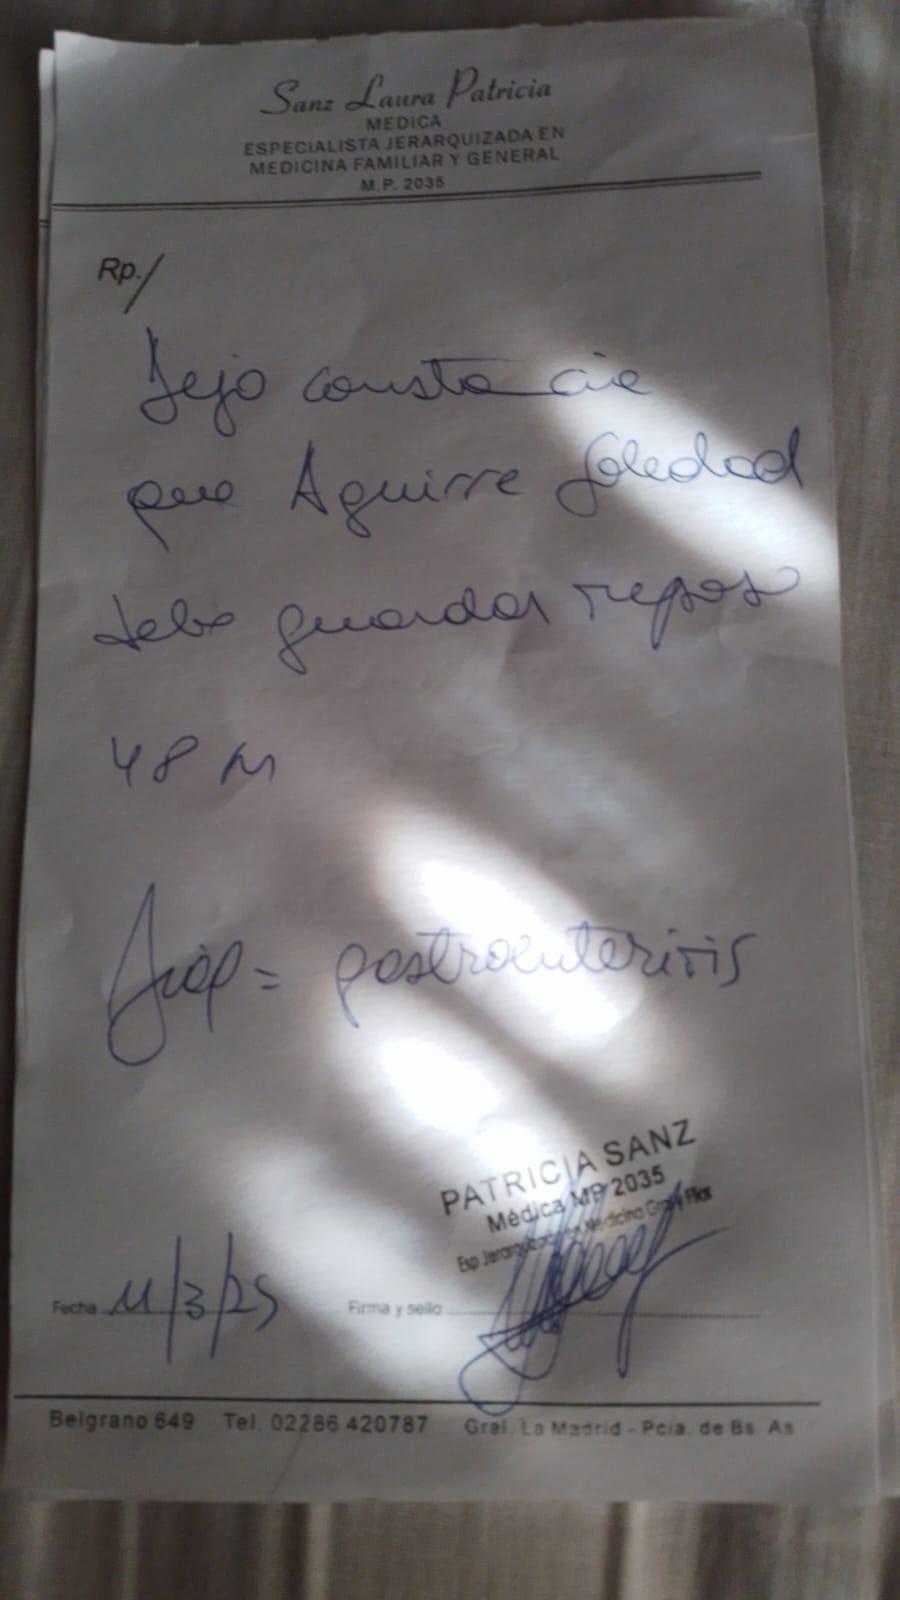 Sanz Laura Patricia
MEDICA
ESPECIALISTA JERARQUIZADA EN
MEDICINA FAMILIAR Y GENERAL
M.P. 2035
Rp./
Dejo constancia
que Aguirre Soledad
debe guardar reposo
48 hs
Diag = gastroenteritis
PATRICIA SANZ
Médica MP 2035
Esp Jerarquizada en Medicina Gral y Fliar
Fecha 11/3/25 Firma y sello
Belgrano 649 Tel. 02286 420787 Gral. La Madrid - Pcia. de Bs. As